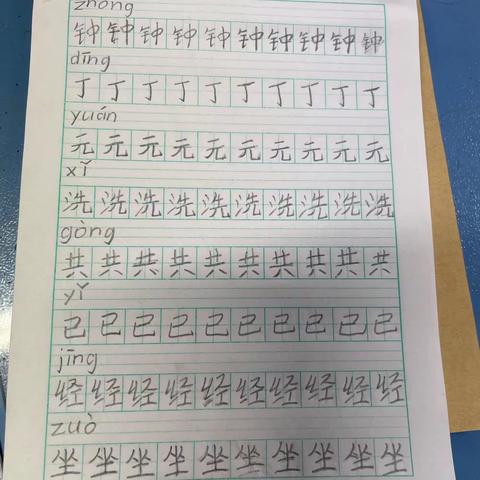 zhōng
钟钟钟钟钟钟钟钟钟钟
dīng
丁丁丁丁丁丁丁丁丁丁
yuán
元元元元元元元元元元
xǐ
洗洗洗洗洗洗洗洗洗洗
gòng
共共共共共共共共共共
yǐ
已已已已已已已已已已
jīng
经经经经经经经经经经
zuò
坐坐坐坐坐坐坐坐坐坐